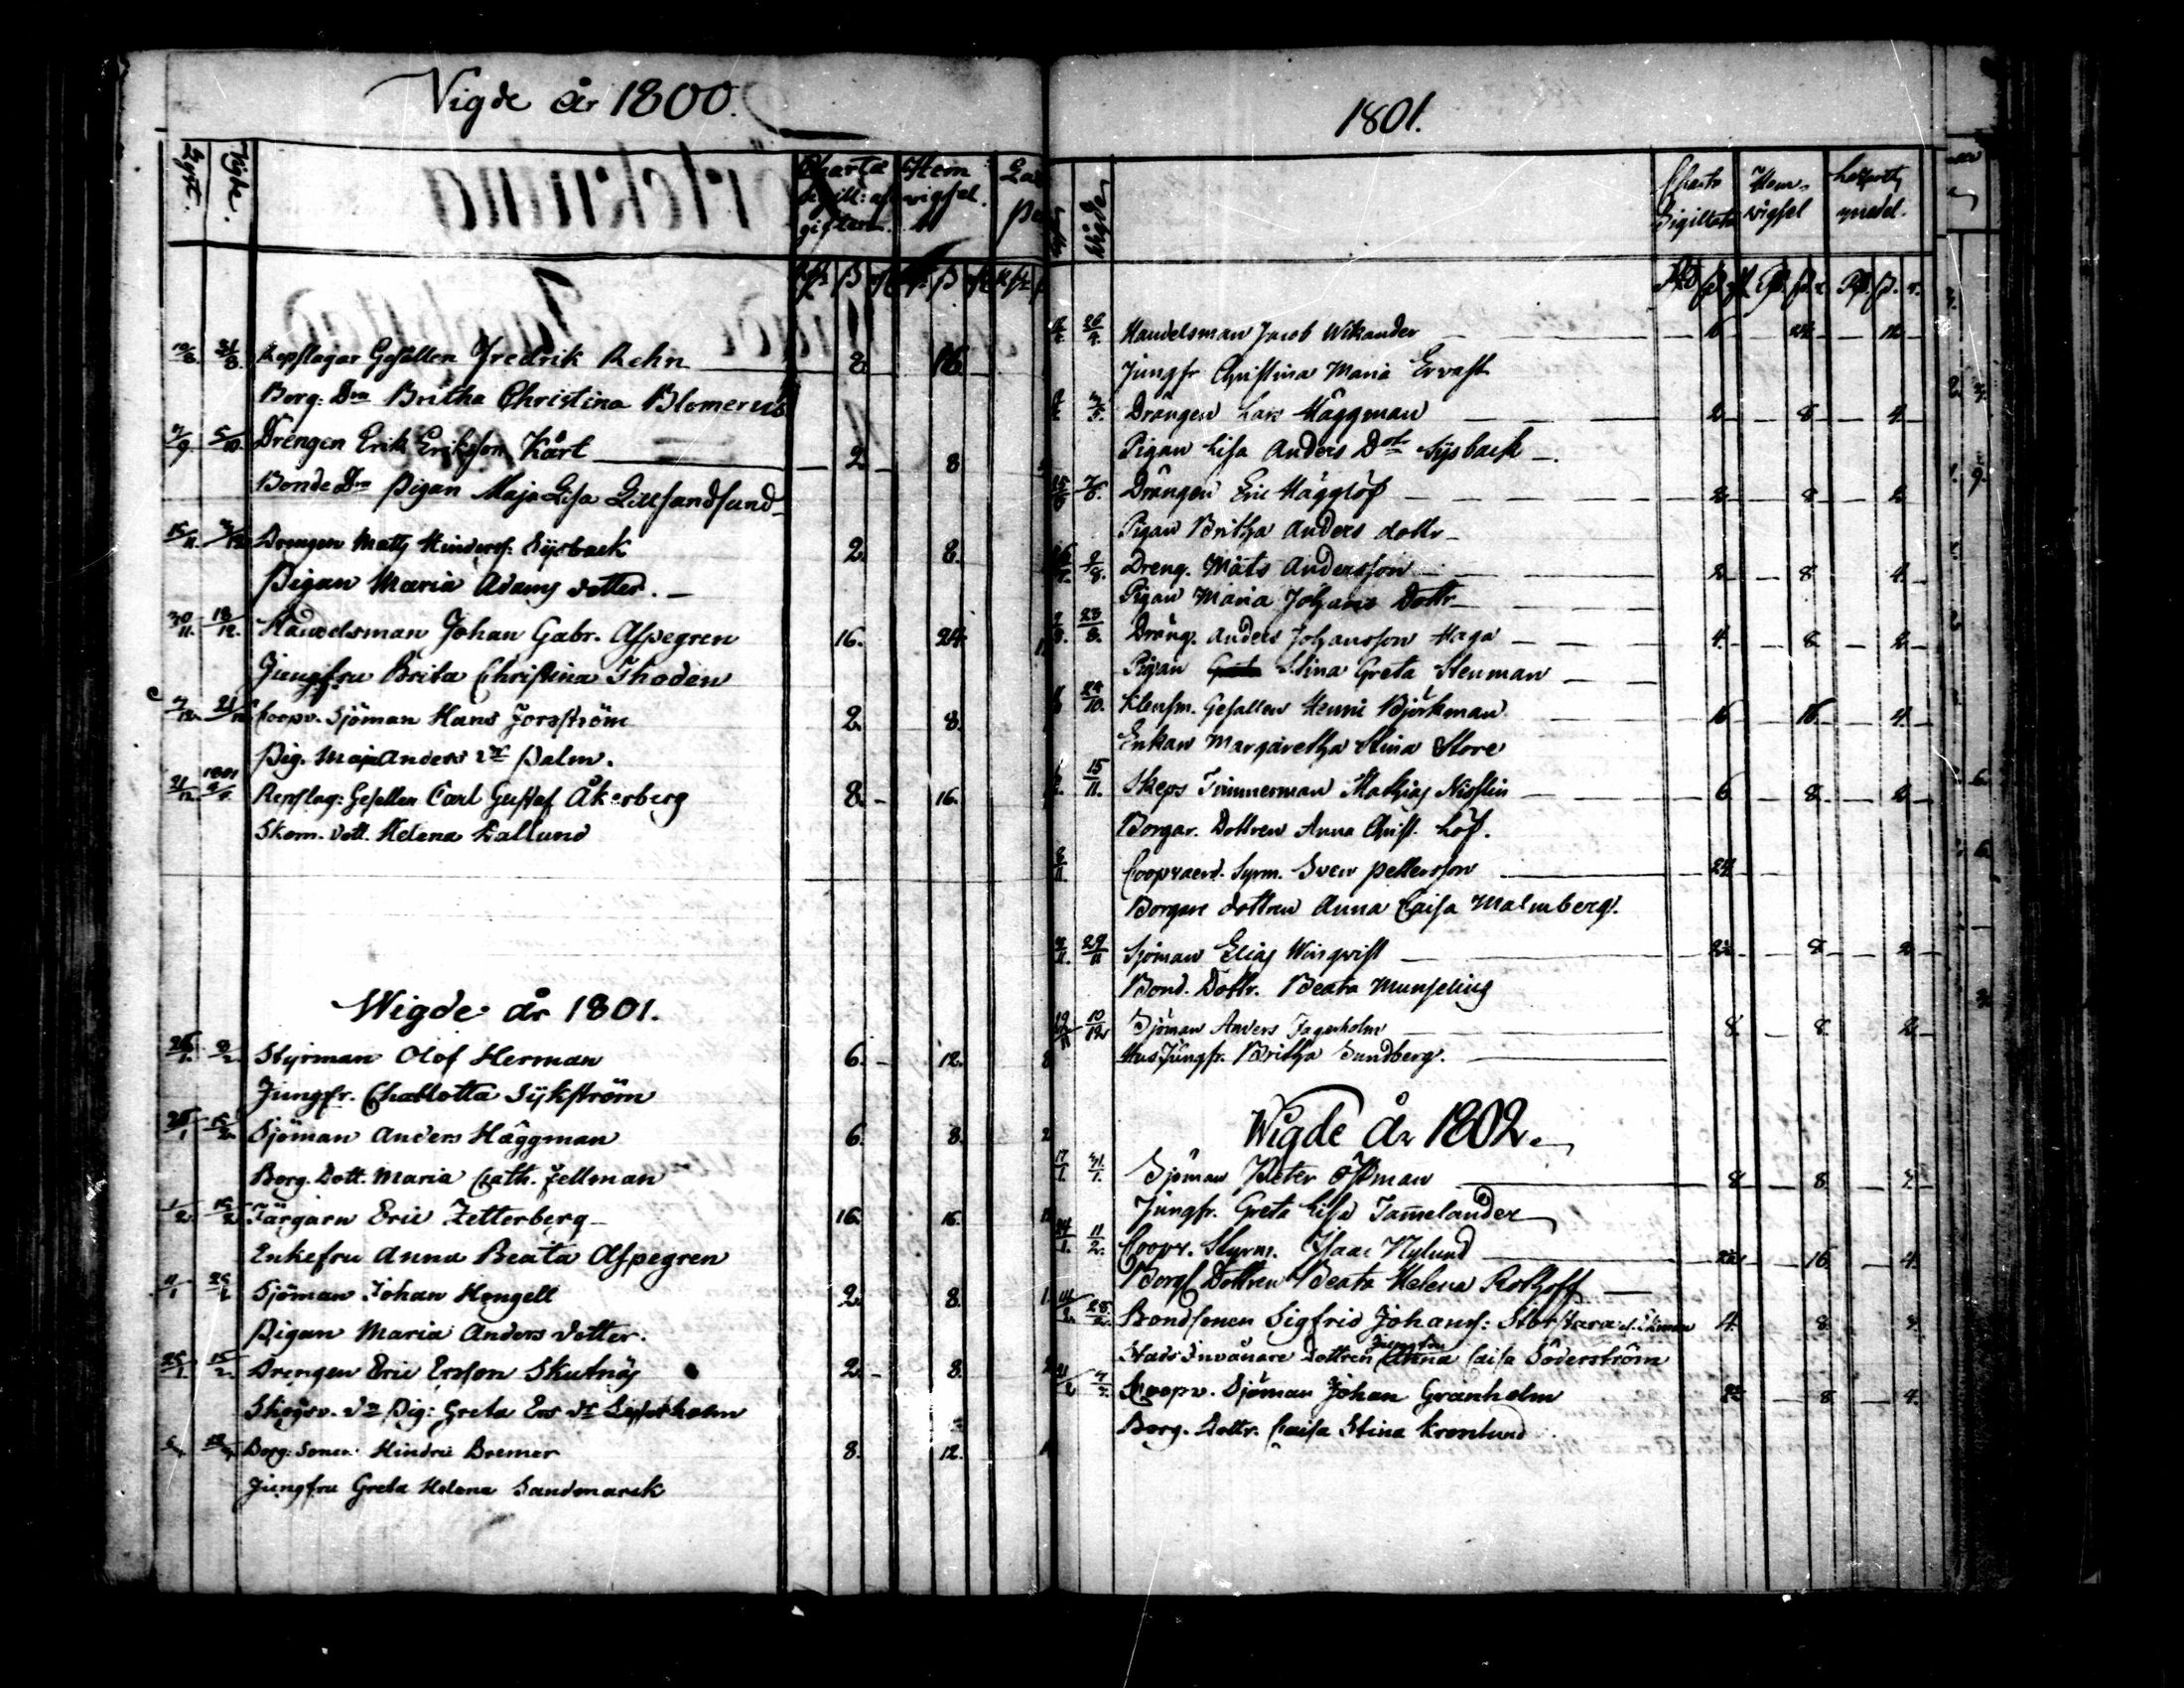 Vigde år 1800.
Lyst. Vigde. Charta Sigill: afgiften. Hemvigsel.
10/8. 31/8. Repslagar Gesällen Fredrik Rehn 8. 16.
Borg. Dra Britha Christina Blomerus
7/9. 5/10. Drengen Erik Eriksson Kårt 2. 8
Bonde Dra Pigan Maja Lisa Lillsandsund
15/11. Drengen Matts Hinderss: Sysback 2. 8.
Pigan Maria Adams dotter.
30/11. 18/12. Handelsman Johan Gabr. Aspegren 16. 24.
Jungfru Brita Christina Thoden
21/12. Coopv. Sjöman Hans Forsström 2. 8.
Pig. Maja Anders dr Palm.
21/12. 1801 Repslag: Gesällen Carl Gustaf Åkerberg 8. 16.
Skom. dott. Helena Dallund
Wigde år 1801.
Styrman Olof Herman 6. 12. 8
Jungfr. Charlotta Sykström
15/2. Sjöman Anders Häggman 6. 8. 2
Borg. Dott. Maria Cath. Fellman
1/2. 15/2. Färgarn Eric Zetterberg 16. 16.
Enkefru Anna Beata Aspegren
Sjöman Johan Hengell 2. 8.
Pigan Maria Anders dotter.
25/1. 15/2. Drengen Eric Ersson Skutnäs 2. 8.
Skogsv. Dr Pig: Greta Ers dr
Borg: Sonen Hindric Bremer 8. 12.
Jungfru Greta Helena Sandmarck
1801.
Vigde Charta Sigillata Hemvigsel Lasarettsmedel.
26/4. Handelsman Jacob Wikander 16 24 12
Jungfr Christina Maria Ervast
3/5. Drängen Lars Häggman 2 8 4
Pigan Lisa Anders Dotr Sysback
7/6. Drängen Eric Hägglöf 2 8 2
Pigan Britha Anders dottr
2/8. Dreng. Mats Andersson 2 8. 4.
Pigan Maria Johans Dottr
2/8. 23/8. Dräng. Anders Johansson Haga 4. 8. 2
Pigan Stina Greta Stenman
24/10. Klensm. Gesällen Henric Björkman 16 16. 4.
Enkan Margaretha Stina Store
15/11. Skeps Timmerman Mathias Nisslin 6 8. 2
Borgar. Dottren Anna Christ. Löf.
8/11. Coopvaerd. Syrm. Sven Pettersson 24
Borgare dottren Anna Caisa Malmberg.
29/11 Sjöman Elias Winqvist 8 2
Bond. Dottr. Beata Munselius
10/12 Sjöman Anders Fagerholm 8 8. 2
HusJungfr. Britha Sundberg.
Wigde År 1802.
17/1. 31/1. Sjöman Peter Östman 8 8.
Jungfr. Greta Lisa Tamelander
24/1. 11/2. Coopv. Styrm. Isaac Nylund 16 4.
Borgl Dottren Beata Helena Rothoff
14/2. 28/2. Bondsonen Sigfrid Johanss: Storstara 4. 8.
Stads Invånare Dottren Jungfru Anna Caisa Söderström
Koopv. Sjöman Johan Granholm 8 4.
Borg. Dottr. Caisa Stina Kronlund